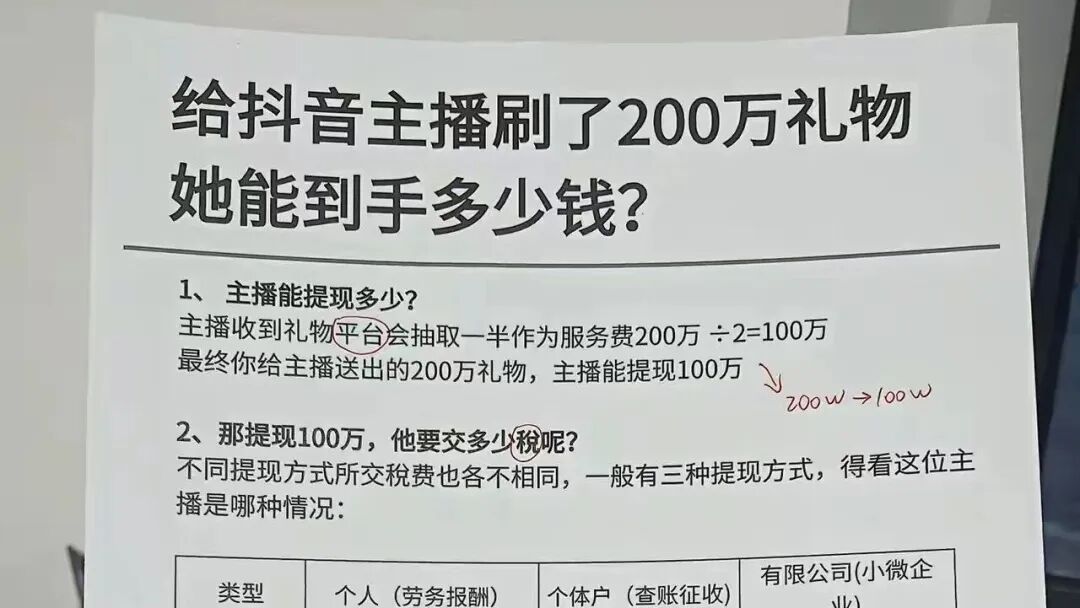 给抖音主播刷了200万礼物
她能到手多少钱?
1、 主播能提现多少?
主播收到礼物平台会抽取一半作为服务费200万 ÷2=100万
最终你给主播送出的200万礼物，主播能提现100万
200W→100W
2、那提现100万，他要交多少税呢?
不同提现方式所交税费也各不相同，一般有三种提现方式，得看这位主
播是哪种情况：
类型 个人（劳务报酬） 个体户（查账征收) 有限公司(小微企
业)